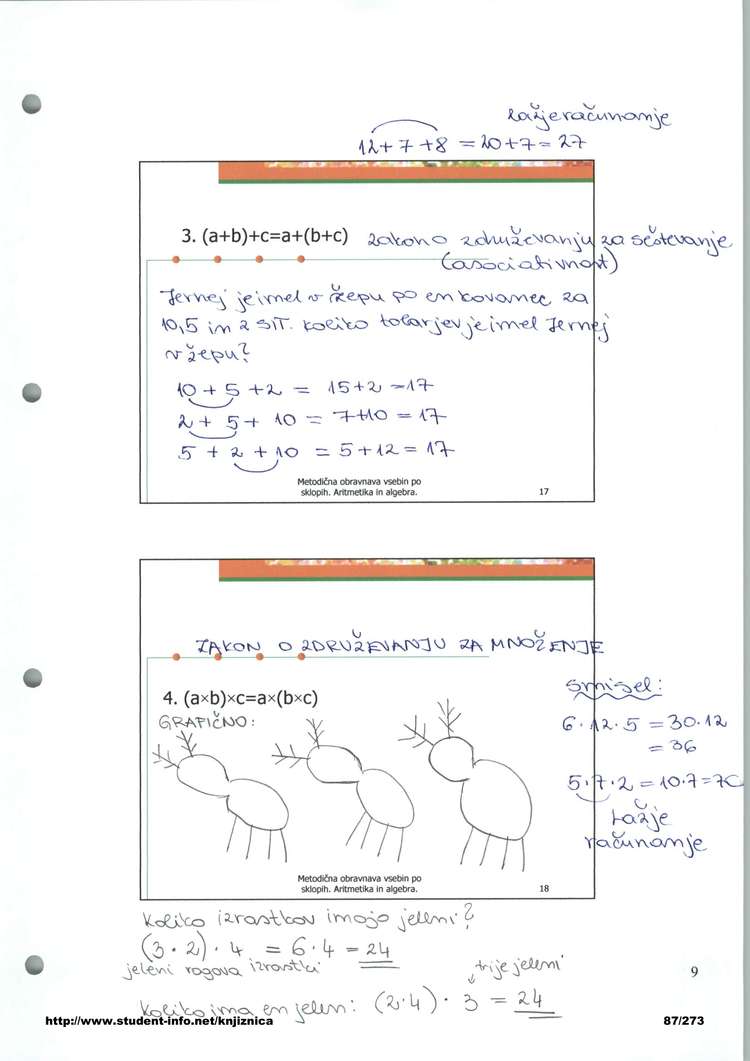 lažje računanje
12+7+8 = 20+7 = 27
3. (a+b)+c=a+(b+c) zakon o združevanju za seštevanje
(asociativnost)
Jernej je imel v žepu po en kovanec za
10,5 in 2 SIT. Koliko tolarjev je imel Jernej
v žepu?
10 + 5 + 2 = 15+2 = 17
2 + 5 + 10 = 7+10 = 17
5 + 2 + 10 = 5+12 = 17
Metodična obravnava vsebin po
sklopih. Aritmetika in algebra.
17
ZAKON O ZDRUŽEVANJU ZA MNOŽENJE
4. (a×b)×c=a×(b×c)
GRAFIČNO:
smisel:
6·12·5 = 30·12
= 36
5·7·2 = 10·7=70
lažje
računanje
Metodična obravnava vsebin po
sklopih. Aritmetika in algebra.
18
Koliko izrastkov imajo jeleni?
(3·2)·4 = 6·4 = 24
jeleni rogova izrastki
trije jeleni
9
Koliko ima en jelen: (2·4)·3 = 24
http://www.student-info.net/knjiznica
87/273